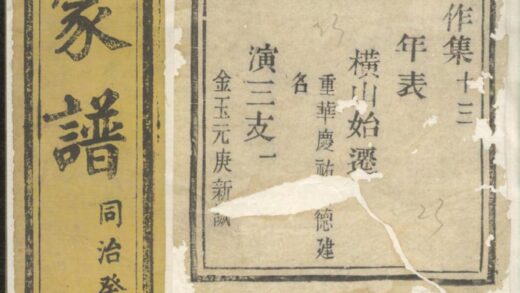 作集十三
年表
橫山始遷
重華慶祐德建
名
演三支一
金玉元庚新
家譜
同治癸
23